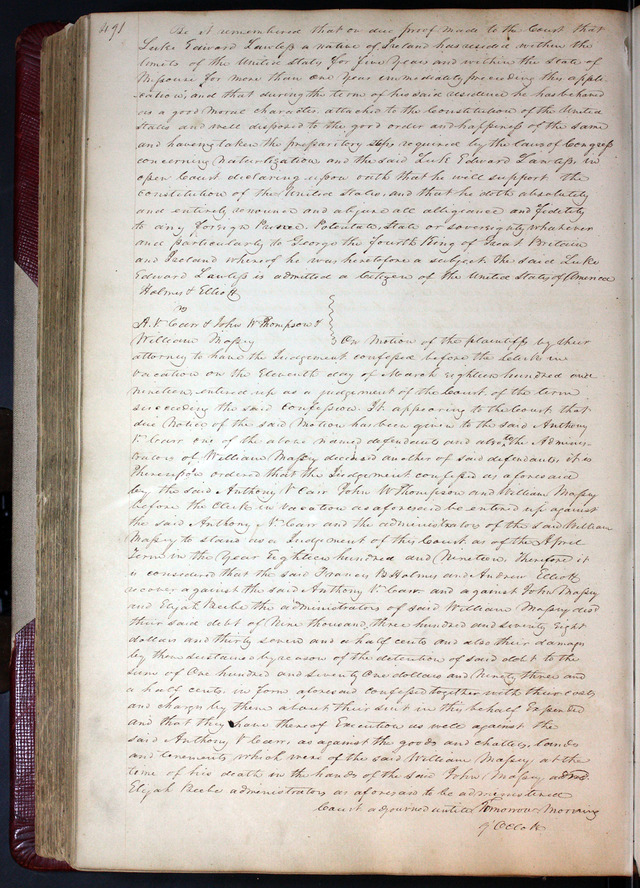 491
Be it remembered that on due proof made to the Court that
Luke Edward Lawless a native of Ireland has resided within the
limits of the United States for five Years and within the State of
Missouri for more than one Year immediately preceeding this appli
-cation, and that during the term of his said residence he has behaved
as a good moral character attached to the Constitution of the United
States and well disposed to the good order and happiness of the same
and having taken the preparitory steps required by the laws of Congress
concerning Naturlization and the said Luke Edward Lawless in
open Court declaring upon oath that he will support the
constitution of the United States, and that he doth absolutely
and entirely renounce and abjure all allegiance and fidelity
to any foreign Prince Potentate State or sovereignty whatever
and particularly to George the fourth King of Great Britain
and Ireland whereof he was heretofore a subject the said Luke
Edward Lawless is admitted a Citizen of the United States of America
Holmes & Elliott
vs
A. V. Carr & John W Thompson &
William Massey On Motion of the plaintiffs by their
attorney to have the Judgement confessed before the Clerk in
vacation on the Eleventh day of March Eighteen hundred and
nineteen, entered up as a judgement of the Court of the term
succeeding the said confession. It appearing to the Court that
due Notice of the said Motion has been given to the said Anthony
V. Carr one of the above named defendants and also to the Adminis-
trators of William Massey deceased another of said defendants, it is
Thereupon ordered that the Judgement confessed as aforesaid
by the said Anthony V Carr John W Thompson and William Massey
before the Clerk in vacation as aforesaid be entered up against
the said Anthony V. Carr and the administrators of the said William
Massey to stand as a Judgement of this Court as of the April
Term in the Year Eighteen hundred and Nineteen, Therefore it
is considered that the said Francis B Holmes and Andrew Elliott
recover against the said Anthony V. Carr and against John Massey
and Elijah Beebe the administrators of said William Massey decd
their said debt of Nine thousand, three hundred and seventy Eight
dollars and thirty seven and a half cents and also their damages
by them sustained by reason of the detention of said debt to the
sum of One hundred and seventy One dollars and Ninety three and
a half cents in form aforesaid confessed together with their costs
and charges by them about their suit in this behalf Expended
and that they have thereof Execution as well against the
said Anthony V Carr, as against the goods and chattels, lands
and tenements which were of the said William Massey at the
time of his death in the hands of the said John Massey and
Elijah Beebe administrators as aforesaid to be administered
Court adjourned untill Tomorrow Morning
9 OClock